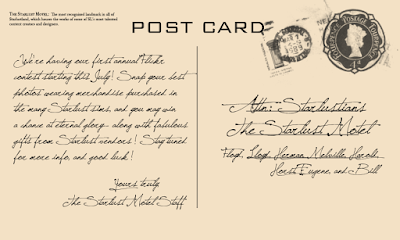 THE STARLUST MOTEL: The most recognized landmark in all of
Starlustland, which houses the works of some of SL's most talented
content creators and designers.
POST CARD
We're having our first annual Flickr
contest starting this July! Snap your best
photos wearing merchandise purchased in
the many Starlust sims, and you may win
a chance at eternal glory - along with fabulous
gifts from Starlust vendors! Stay tuned
for more info, and good luck!
Yours truly,
The Starlust Motel Staff
Attn: Starlustians
The Starlust Motel
Floyd, Lloyd, Herman, Melville, Harold,
Horst, Eugene, and Bill